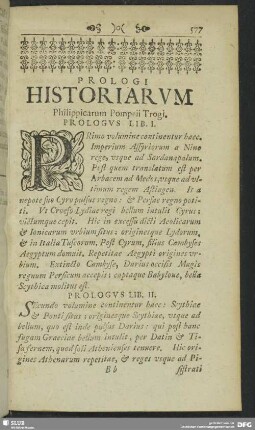 577
PROLOGI
HISTORIARVM
Philippicarum Pompeii Trogi.
PROLOGVS LIB. I.
PRimo volumine continentur haec.
Imperium Assyriorum a Nino
rege, vsque ad Sardanapalum.
Post quem translatum est per
Arbacem ad Medos, vsque ad vl-
timum regem Astiagen. Is a
nepote suo Cyro pulsus regno: & Persae regno poti-
ti. Vt Croeso Lydiae regi bellum intulit Cyrus:
victumque cepit. Hic in excessu dicti Aeolicarum
& Ionicarum vrbium situs: originesque Lydorum,
& in Italia Tuscorum. Post Cyrum, filius Cambyses
Aegyptum domuit. Repetitae Aegypti origines vr-
bium. Extincto Cambyse, Darius occisis Magis
regnum Persicum accepit: captaque Babylone, bella
Scythica molitus est.
PROLOGVS LIB. II.
SEcundo volumine continentur haec: Scythiae
& Ponti situs: originesque Scythiae, vsque ad
bellum, quo est inde pulsus Darius: qui post hanc
fugam Graeciae bellum intulit, per Datin & Ti-
safernem, quod soli Athenienses tenuere. Hic ori-
gines Athenarum repetitae, & reges vsque ad Pi-
Bb
sistrati
SLUB
DFG